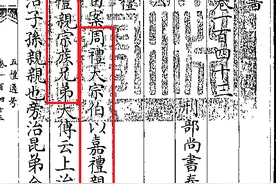 卷一百四十三
刑部尚書秦
田案周禮大宗伯以嘉禮親
禮親宗族兄弟大傳云上治
治子孫親親也旁治昆弟合
五禮通考